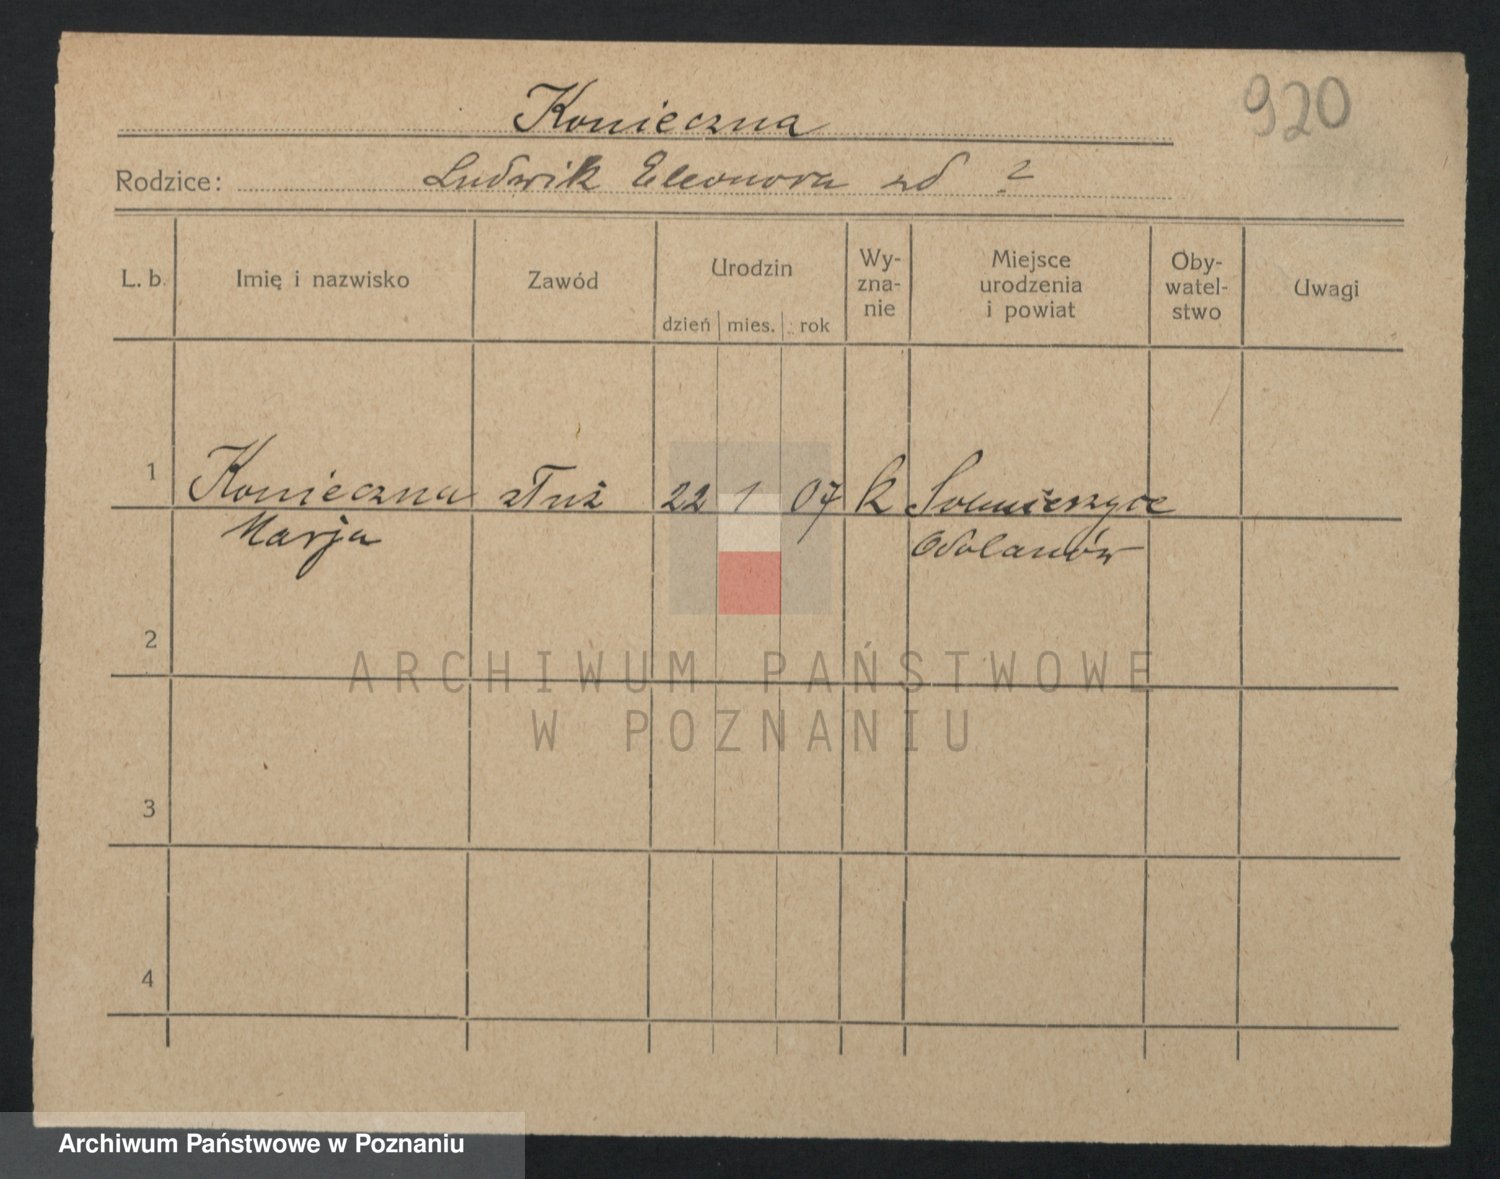 920
Konieczna
Rodzice: Ludwik Eleonora zd ?
L. b. Imię i nazwisko Zawód Urodzin dzień mies. rok Wy-zna-nie Miejsce urodzenia i powiat Oby-watel-stwo Uwagi
1 Konieczna służ 22 1 07 k Sulmierzyce
Marja Odolanów
2
3
4
ARCHIWUM PAŃSTWOWE
W POZNANIU
Archiwum Państwowe w Poznaniu